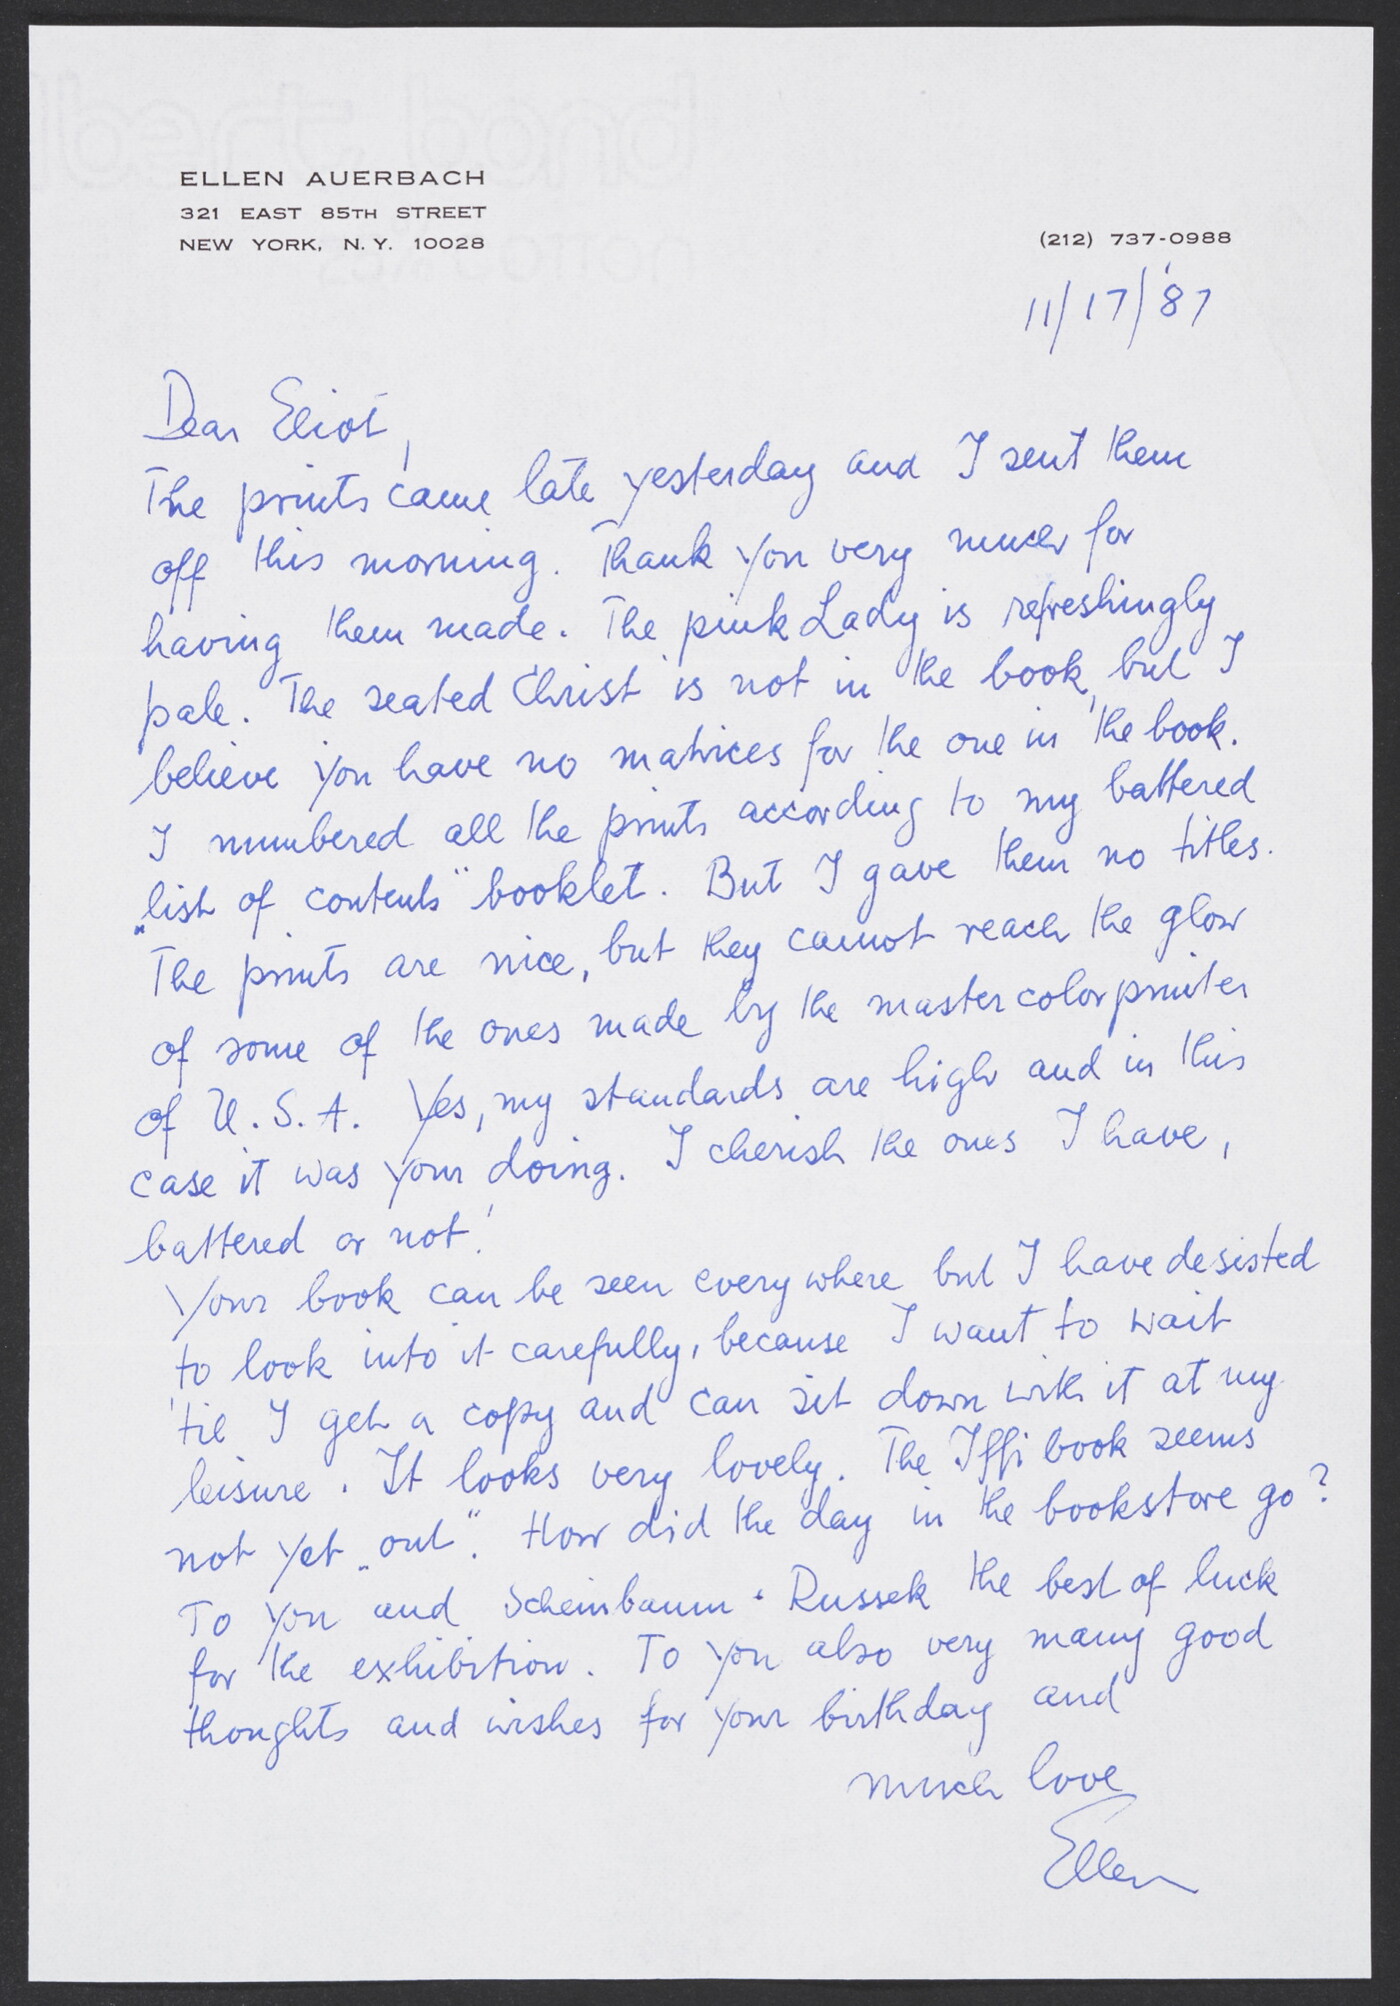 ELLEN AUERBACH
321 EAST 85TH STREET
NEW YORK, N.Y. 10028
(212) 737-0988
11/17/'87
Dear Eliot,
The prints came late yesterday and I sent them
off this morning. Thank you very much for
having them made. The pink Lady is refreshingly
pale. The seated Christ is not in the book, but I
believe you have no matrices for the one in the book.
I numbered all the prints according to my battered
„list of contents“ booklet. But I gave them no titles.
The prints are nice, but they cannot reach the glow
of some of the ones made by the master colorprinter
of U.S.A. Yes, my standards are high and in this
case it was your doing. I cherish the ones I have,
battered or not!
Your book can be seen everywhere but I have desisted
to look into it carefully, because I want to wait
'til I get a copy and can sit down with it at my
leisure. It looks very lovely. The Iffi book seems
not yet „out“. How did the day in the bookstore go?
To you and Scheinbaum + Russek the best of luck
for the exhibition. To you also very many good
thoughts and wishes for your birthday and
much love
Ellen